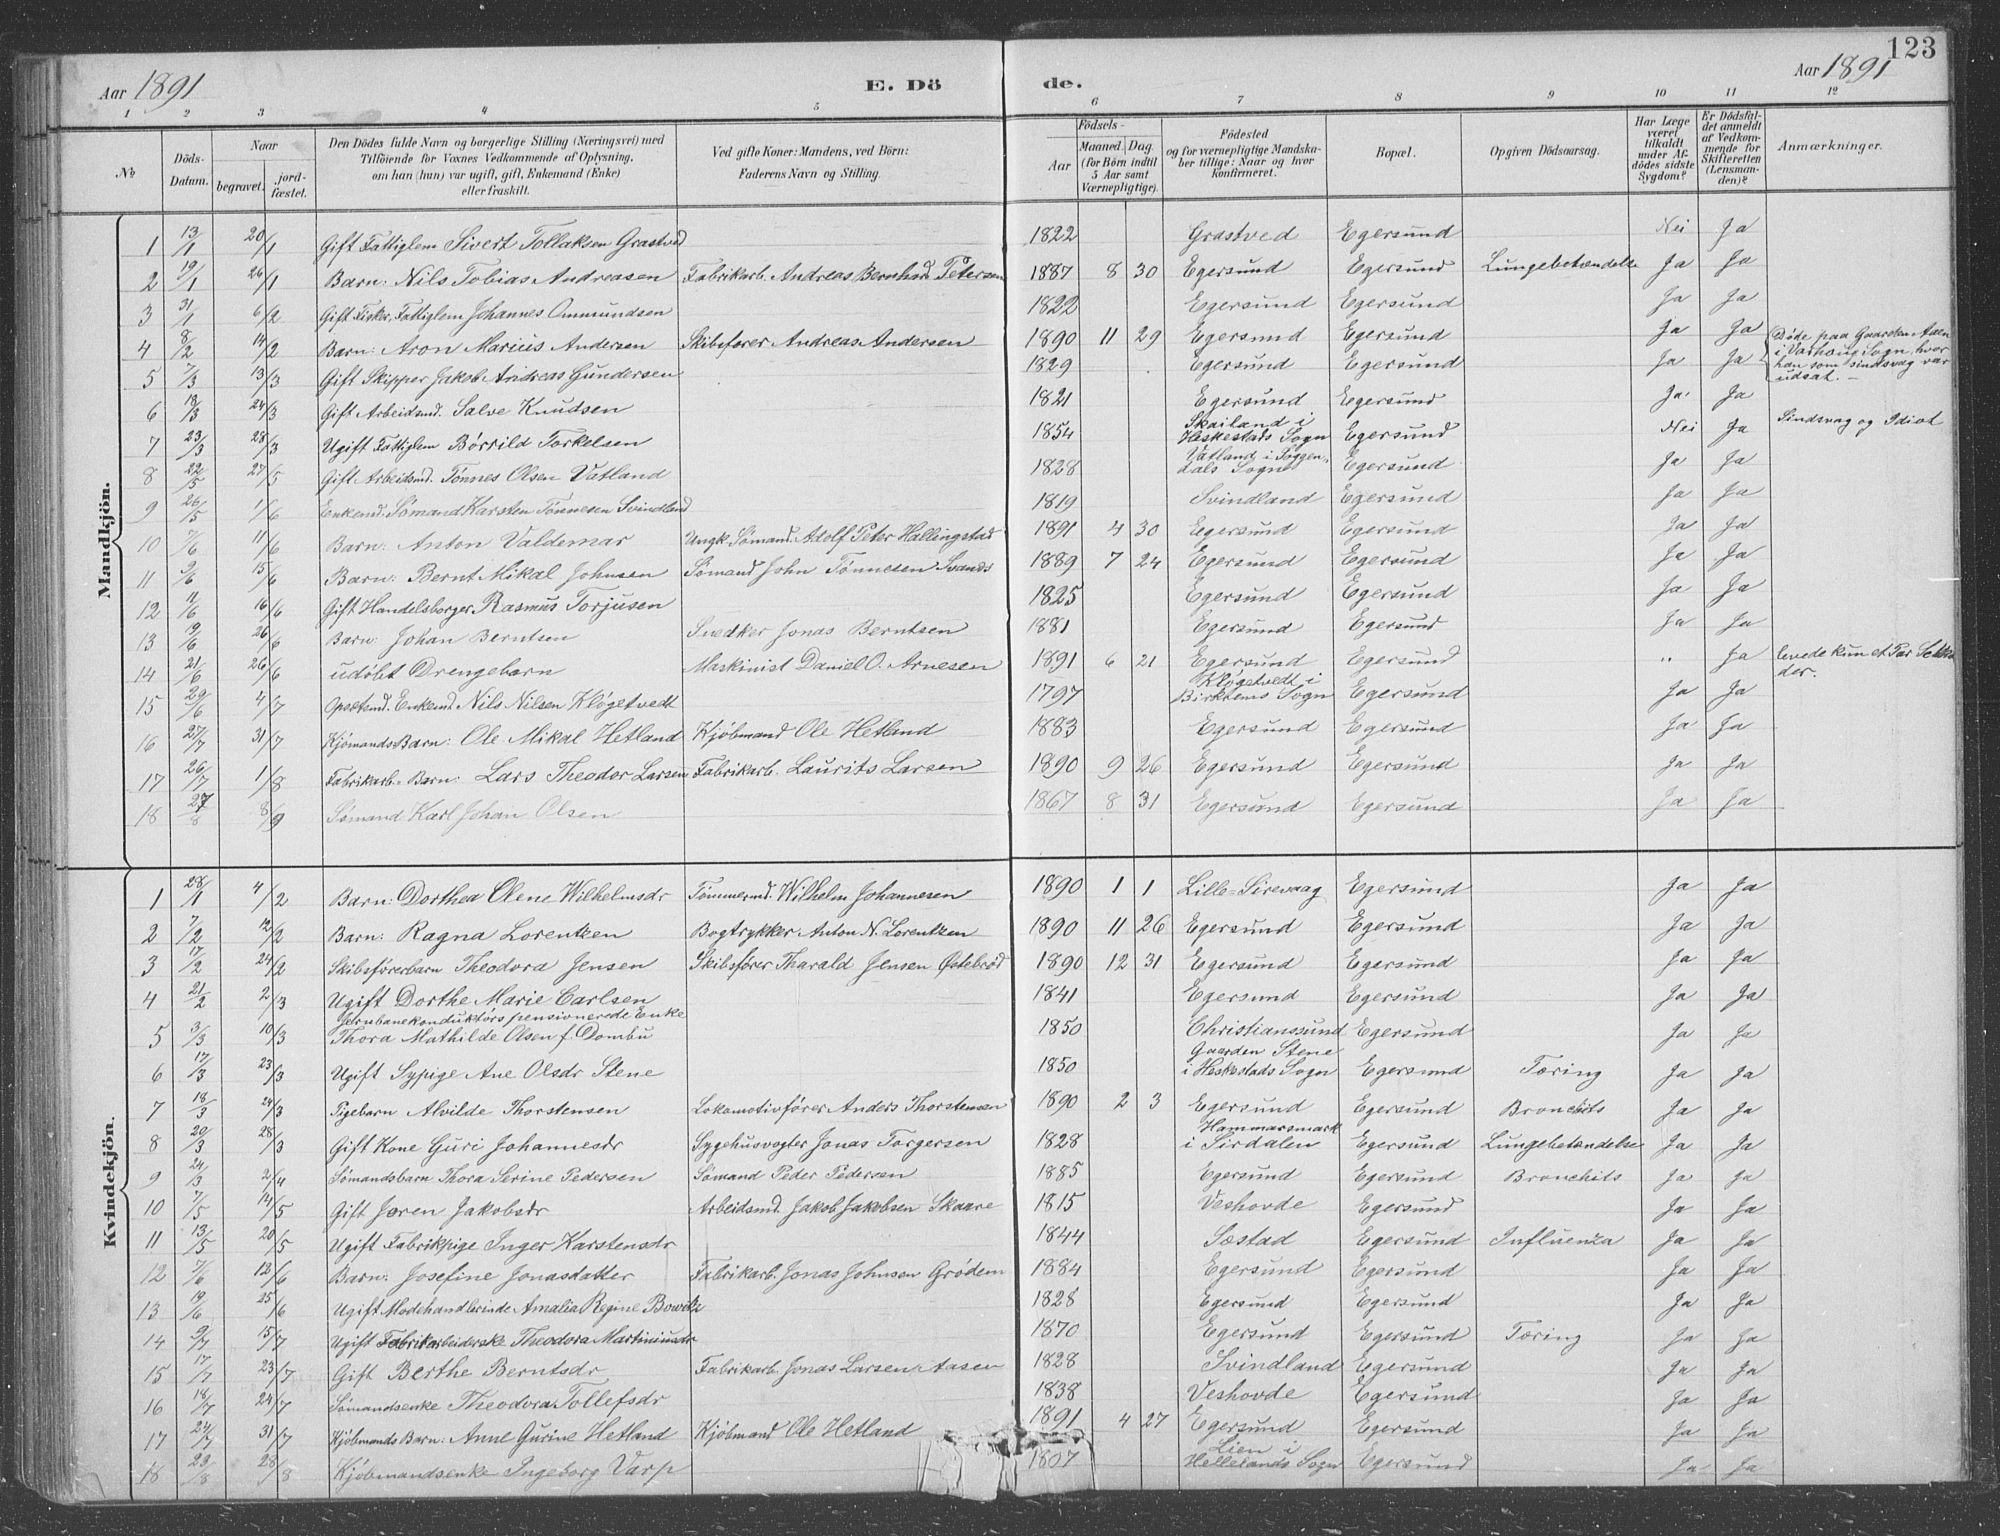 123
Aar 1891 E. Dö de. Aar 1891
1 2 3 4 5 6 7 8 9 10 11 12
№ Døds-Datum. Naar begravet. jordfæstet. Den Dödes fulde Navn og borgerlige Stilling (Næringsvei) med Tilföiende for Voxnes Vedkommende af Oplysning, om han (hun) var ugift, gift, Enkemand (Enke) eller fraskilt. Ved gifte Koner: Mandens, ved Börn: Faderens Navn og Stilling. Födsels- Aar Maaned. Dag. (for Börn indtil 5 Aar samt Værnepligtige). Födested og for værnepligtige Mandskaber tillige: Naar og hvor konfirmeret. Bopæl. Opgiven Dödsaarsag. Har Læge været tilkaldt under Afdödes sidste Sygdom? Er Dödsfaldet anmeldt af Vedkommende for Skifteretten (Lensmanden)? Anmærkninger.
Mandkjön.
1 13/1 20/1 Gift Fattiglem Sivert Tollaksen Grastved 1822 Grastved Egersund Nei Ja
2 19/1 26/1 Barn: Nils Tobias Andreasen Fabrikarb. Andreas Bernhad Petersen 1887 8 30 Egersund Egersund Lungebetændelse Ja Ja
3 31/1 6/2 Gift Fisker, Fattiglem Johannes Ommundsen 1822 Egersund Egersund Ja Ja
4 8/2 14/2 Barn: Aron Marius Andersen Skibsfører Andreas Andersen 1890 11 29 Egersund Egersund Ja Ja
5 7/3 13/3 Gift Skipper Jakob Andreas Gundersen 1829 Egersund Egersund Ja Ja Døde paa Gaarden Aaen i Varhaug Sogn, hvor han som sindsvag var udsat.
6 18/3 24/3 Gift Arbeidsmd. Salve Knudsen 1821 Egersund Egersund Ja Ja
7 23/3 28/3 Ugift Fattiglem Børrild Torkelsen 1854 Skailand i Heskestads Sogn Egersund Nei Ja Sindsvag og Idiot
8 22/5 27/5 Gift Arbeidsmd. Tønnes Olsen Vatland 1828 Vatland i Soggendals Sogn Egersund Ja Ja
9 26/5 1/6 Enkemd. Sømand Karsten Tønnesen Svindland 1819 Svindland Egersund Ja Ja
10 7/6 11/6 Barn: Anton Valdemar Ungk. Sømand Adolf Peter Hallingstad 1891 4 30 Egersund Egersund Ja Ja
11 9/6 15/6 Barn: Bernt Mikal Johnsen Sømand John Tønnesen Svands 1889 7 24 Egersund Egersund Ja Ja
12 11/6 16/6 Gift Handelsborger Rasmus Torjusen 1825 Egersund Egersund Ja Ja
13 19/6 26/6 Barn: Johan Berntsen Snedker Jonas Berntsen 1881 Egersund Egersund Ja Ja
14 21/6 26/6 udøbt Drengebarn Maskinist Daniel O. Arnesen 1891 6 21 Egersund Egersund " Ja levede kun et Par
15 29/6 4/7 Enkemd. Nils Nilsen Kløgetvedt 1797 Kløgetvedt i Birkrems Sogn Egersund Ja Ja
16 27/7 31/7 KjømandsBarn: Ole Mikal Hetland Kjøbmand Ole Hetland 1883 Egersund Egersund Ja Ja
17 26/7 1/8 Fabrikarb. Barn: Lars Theodor Larsen Fabrikarb. Laurits Larsen 1890 9 26 Egersund Egersund Ja Ja
18 27/8 8/9 Sømand Karl Johan Olsen 1867 8 31 Egersund Egersund Ja Ja
Kvindekjön.
1 28/1 4/2 Barn: Dorthea Olene Wilhelmsdr Tømmermd. Wilhelm Johannesen 1890 1 1 Lille-Sirevaag Egersund Ja Ja
2 7/2 12/2 Barn: Ragna Lorentzen Bogtrykker Anton N. Lorentzen 1890 11 26 Egersund Egersund Ja Ja
3 17/2 24/2 Skibsførerbarn Theodora Jensen Skibsfører Tharald Jensen Østebrød 1890 12 31 Egersund Egersund Ja Ja
4 21/2 2/3 Ugift Dorthe Marie Carlsen 1841 Egersund Egersund Ja Ja
5 3/3 10/3 Jernbanekonduktørs pensionerede Enke Thora Mathilde Olsen f. Dombu 1850 Christianssund Egersund Ja Ja
6 17/3 23/3 Ugift Sypige Ane Olsdr Stene 1850 Gaarden Stene i Heskestads Sogn Egersund Tæring Ja Ja
7 18/3 24/3 Pigebarn Alvilde Thorstensen Lokomotivfører Anders Thorstensen 1890 2 3 Egersund Egersund Bronchits Ja Ja
8 20/3 28/3 Gift Kone Guri Johannesdr Sygehusvogter Jonas Torgersen 1828 Hammarsmark i Sirdalen Egersund Lungebetændelse Ja Ja
9 24/3 2/4 Sømandsbarn Thora Serine Pedersen Sømand Peder Pedersen 1885 Egersund Egersund Bronchits Ja Ja
10 7/5 14/5 Gift Jøren Jakobsdr Arbeidsmd. Jakob Jakobsen Skaare 1815 Veshovde Egersund Ja Ja
11 13/5 20/5 Ugift Fabrikpige Inger Karstensdr 1844 Sæstad Egersund Influenza Ja Ja
12 7/6 12/6 Barn: Josefine Jonasdatter Fabrikarb. Jonas Johnsen Grødem 1884 Egersund Egersund Ja Ja
13 19/6 25/6 Ugift Modehandlerinde Amalia Regine Bowitz 1828 Egersund Egersund Ja Ja
14 9/7 15/7 Ugift Fabrikarbeiderske Theodora Martiniusdr 1870 Egersund Egersund Tæring Ja Ja
15 17/7 23/7 Gift Berthe Berntsdr Fabrikarb. Jonas Larsen Aasen 1828 Svindland Egersund Ja Ja
16 18/7 24/7 Sømandsenke Theodora Tollefsdr 1838 Veshovde Egersund Ja Ja
17 24/7 31/7 Kjøbmands Barn: Anne Gurine Hetland Kjøbmand Ole Hetland 1891 4 27 Egersund Egersund Ja Ja
18 23/8 28/8 Kjøbmandsenke Ingeborg Varp 1807 Lien i Hellelands Sogn Egersund Ja Ja